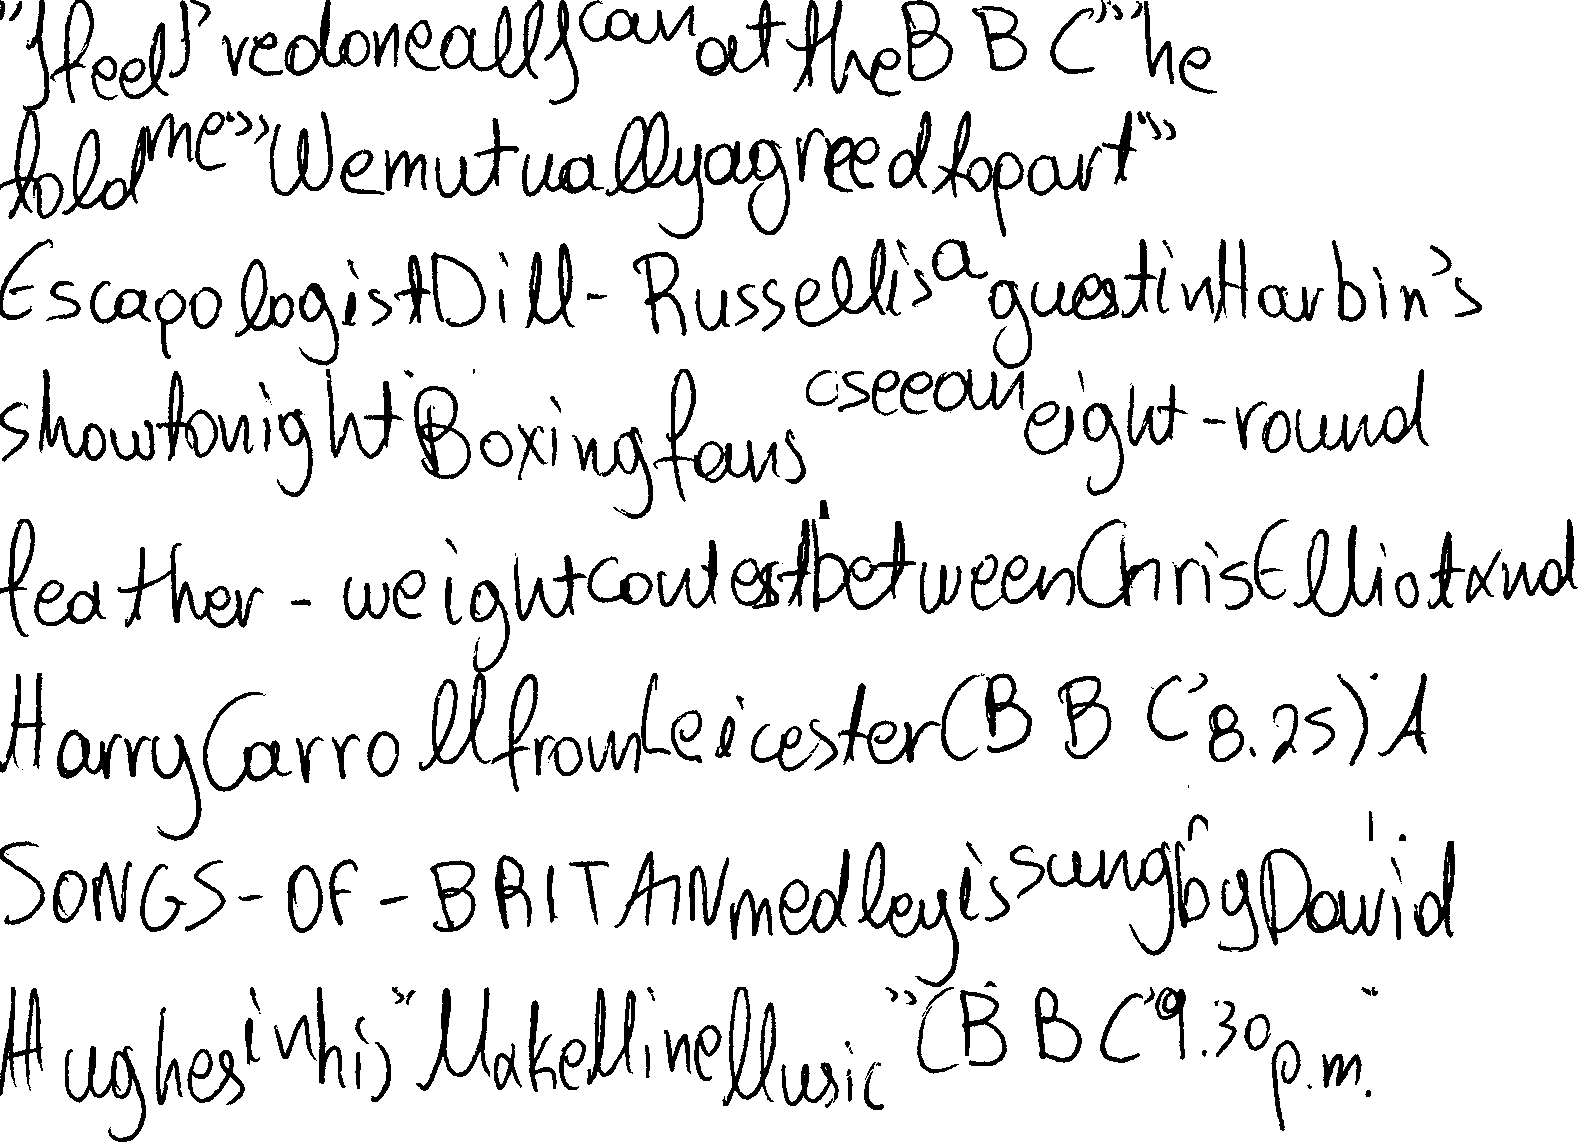 "I feel I've done all I can at the B B C," he
told me. "We mutually agreed to part."
Escapologist Dill-Russell is a guest in Harbin's
show tonight. Boxing fans see an eight-round
feather-weight contest between Chris Elliot and
Harry Carroll from Leicester (B B C, 8.25). A
SONGS-OF-BRITAIN medley is sung by David
Hughes in his "Make Mine Music" (B B C, 9.30 p.m.